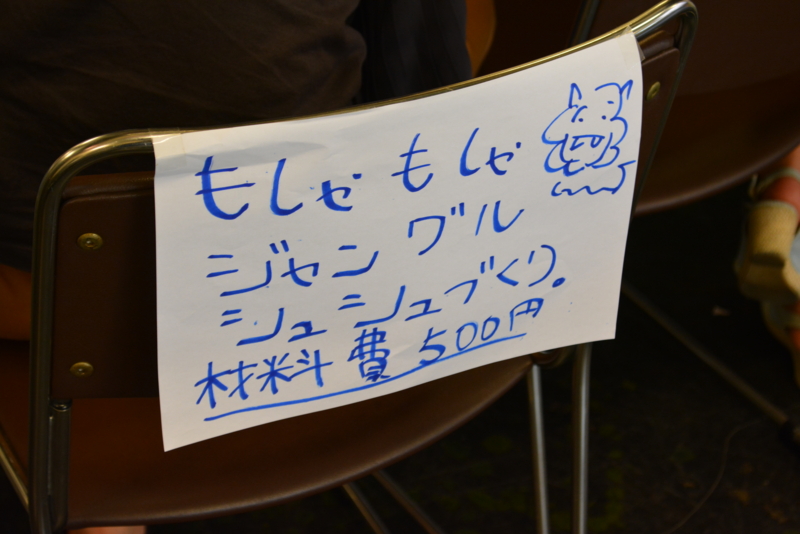 もしゃもしゃ
ジャングル
シュシュづくり。
材料費500円